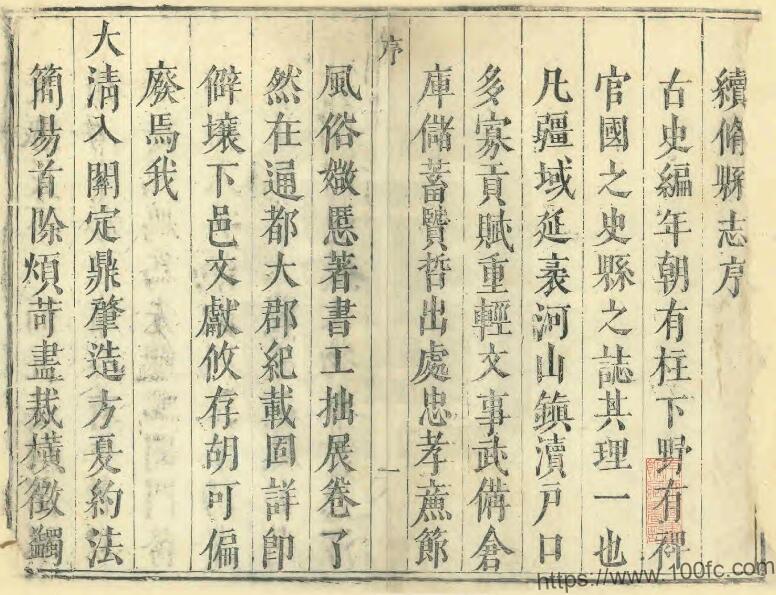 續脩縣志序
古史編年朝有柱下野有稗
官國之史縣之誌其理一也
凡疆域延袤河山鎮瀆戸口
多寡貢賦重輕文事武備倉
庫儲蓄賢哲出處忠孝亷節
序
一
風俗媺慝著書工拙展卷了
然在通都大郡紀載固詳卽
僻壤下邑文獻攸存胡可偏
廢焉我
大淸入關定鼎肇造方夏約法
簡易首除煩苛盡裁橫徵蠲
https://www.100fc.com